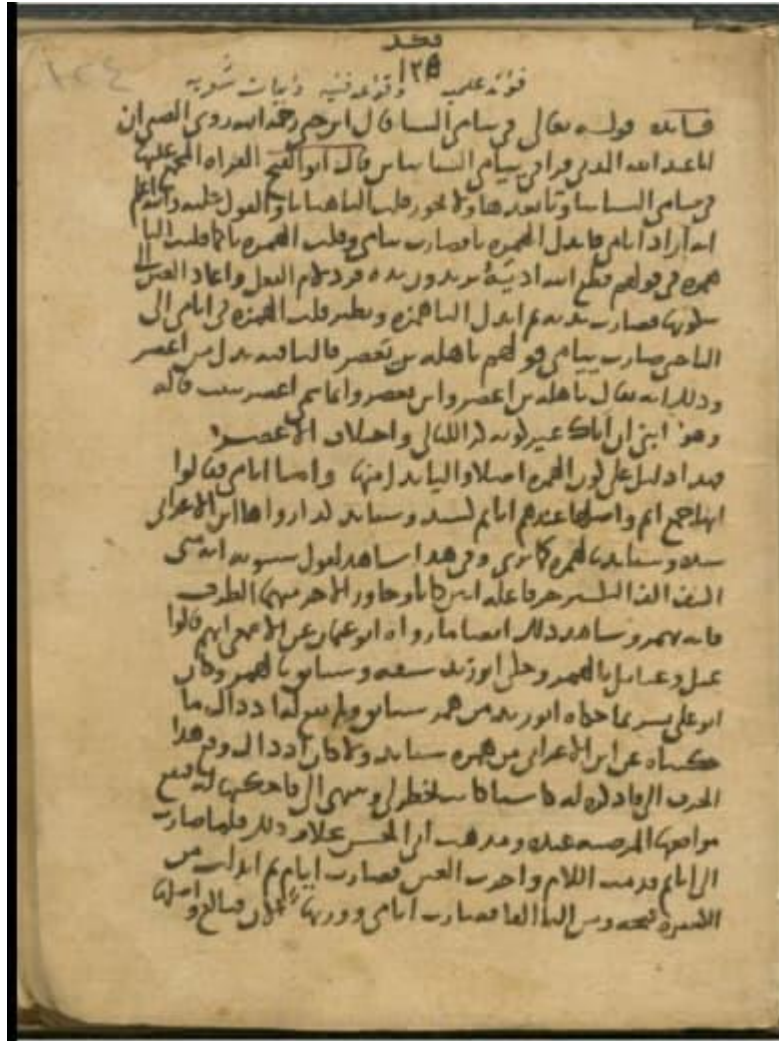 ١٢٤
١٢٥
فوائد علمية وقواعد فنية وأبيات شعرية
فائدة قوله تعالى في ييامى النسا قال ابن جني رحمه الله روى
ابا عبد الله المدني قرا في ييامى النسا بياين قال ابو الفتح القراه المجمع عليها
في يتامى النسا بيا وتا بعدها ولا يجوز قلب التا هنا يا والقول عليه والله اعلم
انه اراد ايامى فابدل الهمزة يا فصارت ييامى وقلب الهمزة يا كما قلب اليا
همزة في قولهم قطع الله اديه يريدون يده فرد لام الفعل واعاد العين الى
سكونها فصارت يديه ثم ابدل اليا همزة ونظير قلب الهمزة في ايامى الى
اليا حتى صارت ييامى قولهم باهلة بن يعصر فاليا فيه بدل من اعصر
وذلك انه يقال باهلة بن اعصر وابن يعصر وانما سمي اعصر ببيت قاله
وهو ابني ان اباك غير لونه كر الليالي واختلاف الاعصر
فهذا دليل على كون الهمزة اصلا واليا بدل منها واما ايامى فقالوا
انها جمع ايم واصلها عندهم ايايم كسيد وسيايد كذا رواها ابن الاعرابي
سيد وسيايد بالهمزة كما ترى وفي هذا شاهد لقول سيبويه انه متى
اكتنف الف التكسير حرفا علة اين كانا وجاور الاخر منهما الطرف
فانه يهمز وشاهد ذلك ايضا ما رواه ابو عثمان عن الاصمعي انهم قالوا
عيل وعيايل بالهمز وحكى ابو زيد سيقة وسيايق بالهمز وكان
ابو علي يسر بما حكاه ابو زيد من همز سيايق ولم يقع له اذ ذاك ما
حكيناه عن ابن الاعرابي من همزه سيايد ولا كان اذ ذاك وقع هذا
الحرف الي فاذكره له
مواقعها المرضية عنده ومذهب ابي الحسن خلاف ذلك فلما صارت
الى ايايم قدمت اللام واخرت العين فصارت ايامي ثم ابدلت من
الكسرة فتحة ومن اليا الفا فصارت ايامى ووزنها الان فيالع واصلها